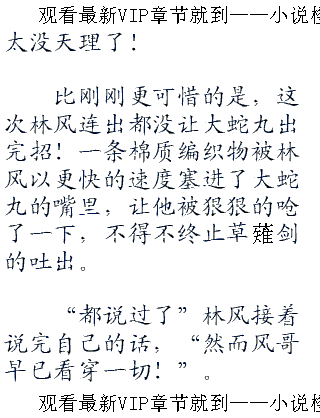 观看最新VIP章节就到——小说
太没天理了！
比刚刚更可惜的是，这
次林风连出都没让大蛇丸出
完招！一条棉质编织物被林
风以更快的速度塞进了大蛇
丸的嘴里，让他被狠狠的呛
了一下，不得不终止草薙剑
的吐出。
“都说过了”林风接着
说完自己的话，“然而风哥
早已看穿一切！”。
观看最新VIP章节就到——小说